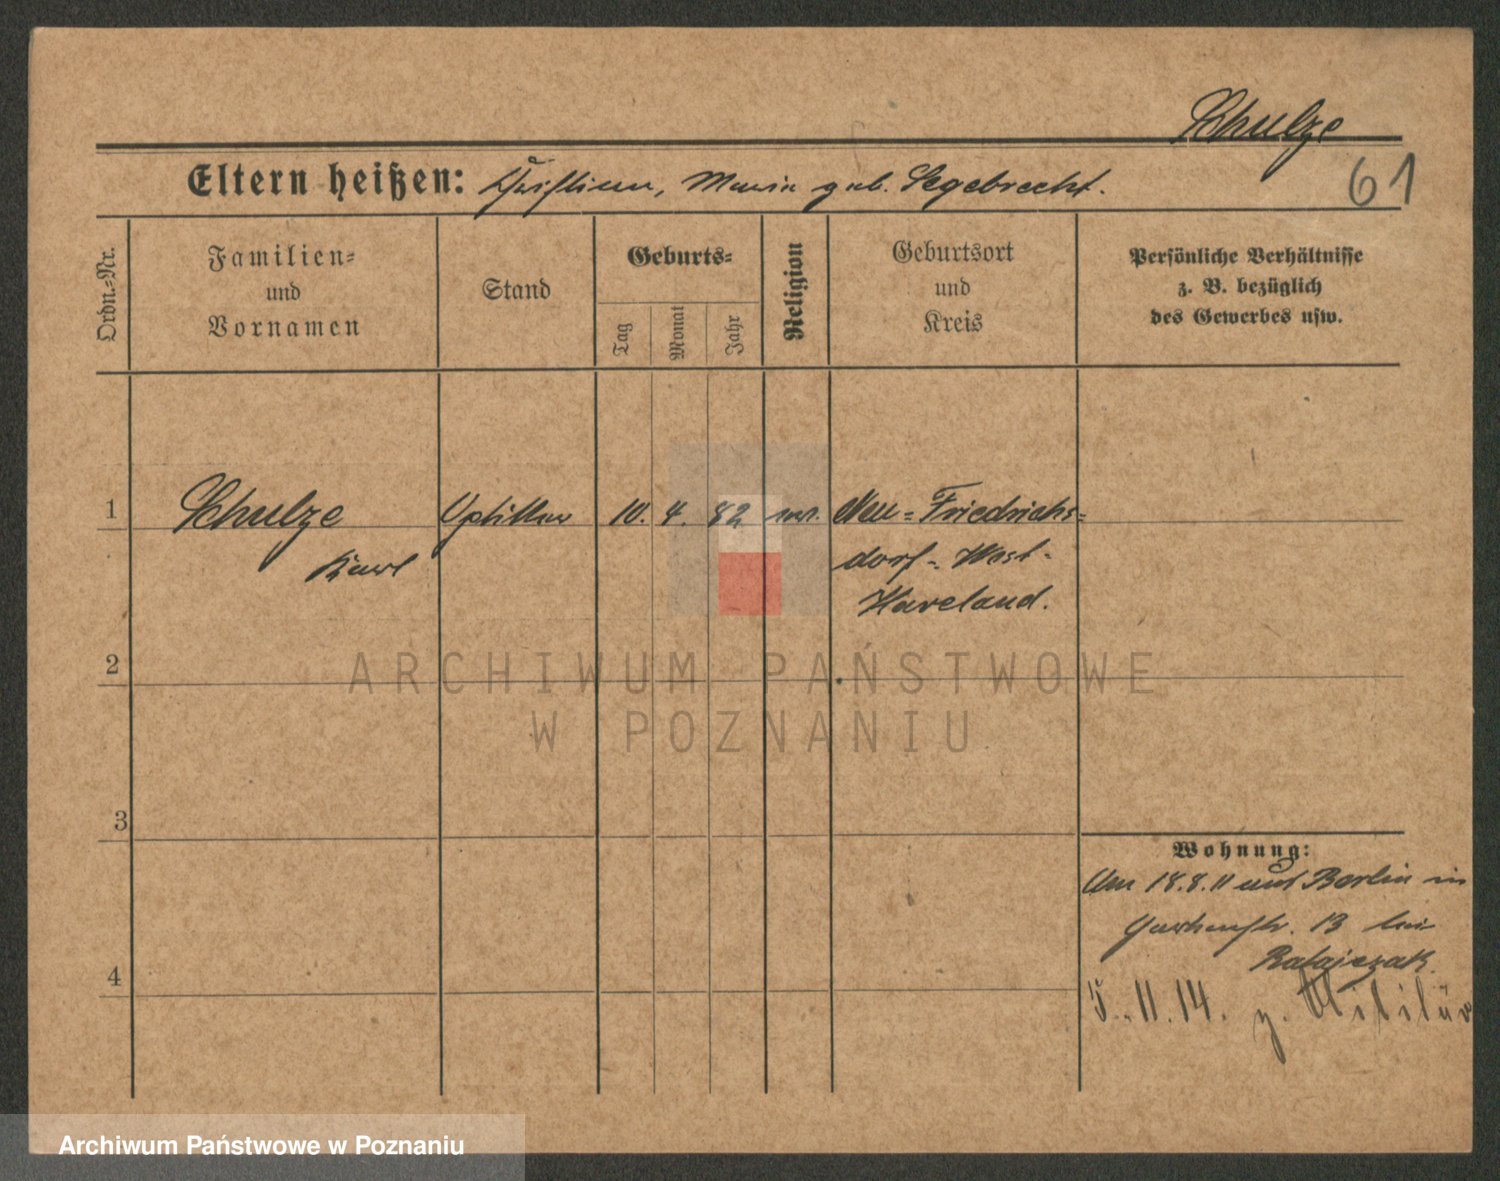 Schulze
Eltern heißen: Christian, Marie geb. Segebrecht.
61
Ordn.-Nr.
Familien-
und
Vornamen
Stand
Geburts-
Tag
Monat
Jahr
Religion
Geburtsort
und
Kreis
Persönliche Verhältnisse
z. B. bezüglich
des Gewerbes usw.
1 Schulze 10. 4. 82 Neu-Friedrichs-
Karl dorf-West-
Havelland.
2
ARCHIWUM PAŃSTWOWE
W POZNANIU
3
Wohnung:
Am 18.8.11 aus Berlin in
13 bei
Ratajczak.
4
5.11.14. z. Militär
Archiwum Państwowe w Poznaniu